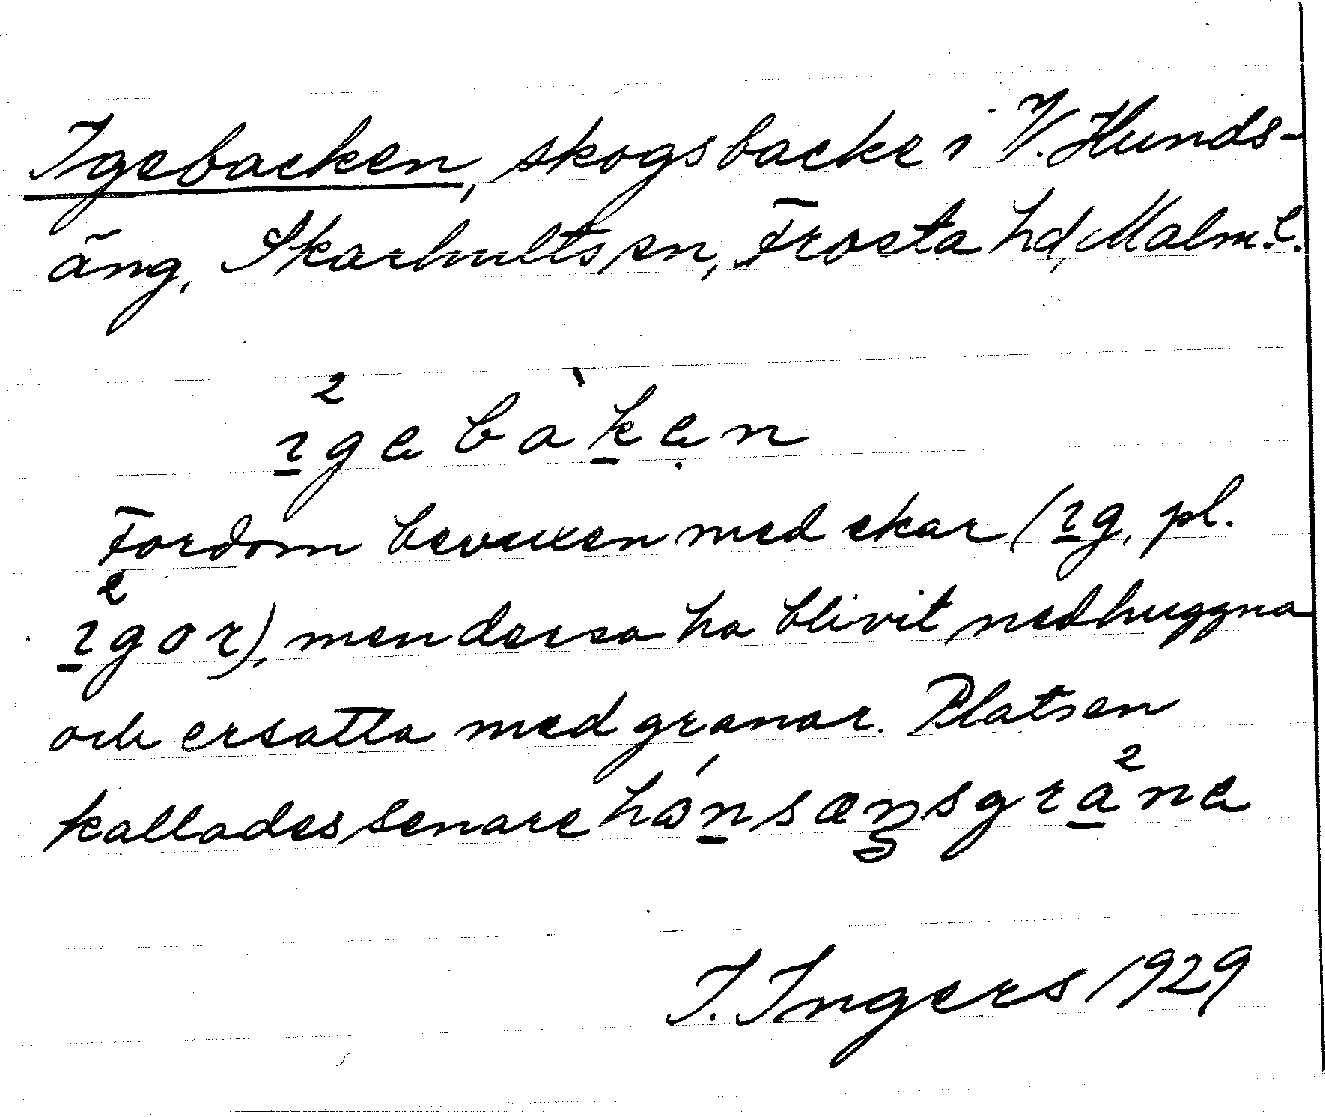 Igebacken, skogsbacke i V. Hunds-
äng, Skarhults sn, Frosta hd, Malm.l.
ı̱²gebàḵẹn
Fordom bevuxen med ekar (ı̱g, pl.
ı̱²gor), men dessa ha blivit nedhuggna
och ersatta med granar. Platsen
kallades senare
J. Ingers 1929